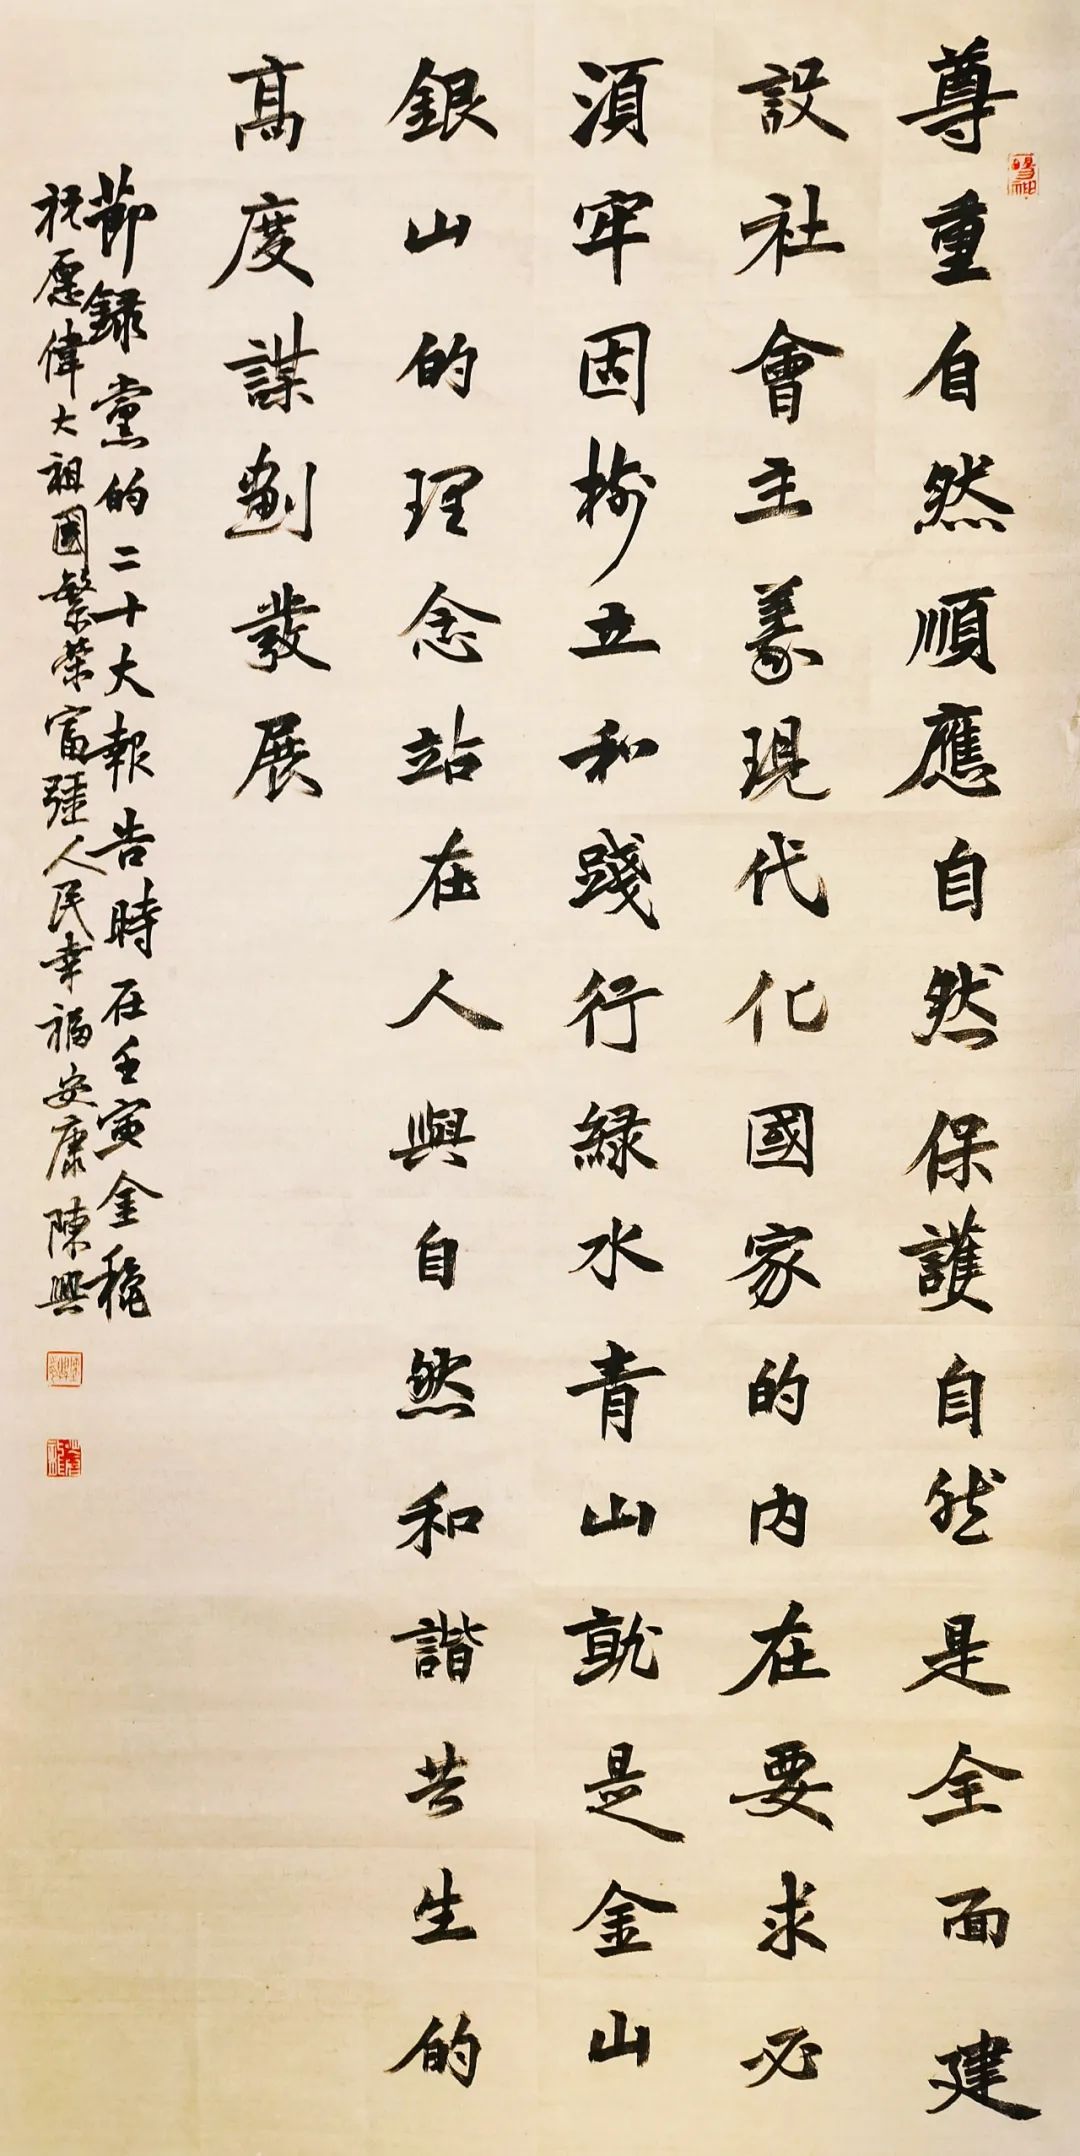 尊重自然順應自然保護自然是全面建
設社會主義現代化國家的内在要求必
須牢固樹立和踐行緑水青山就是金山
銀山的理念站在人與自然和諧共生的
高度謀劃發展
節録黨的二十大報告時在壬寅金秋
祝愿偉大祖國繁榮富強人民幸福安康陳興